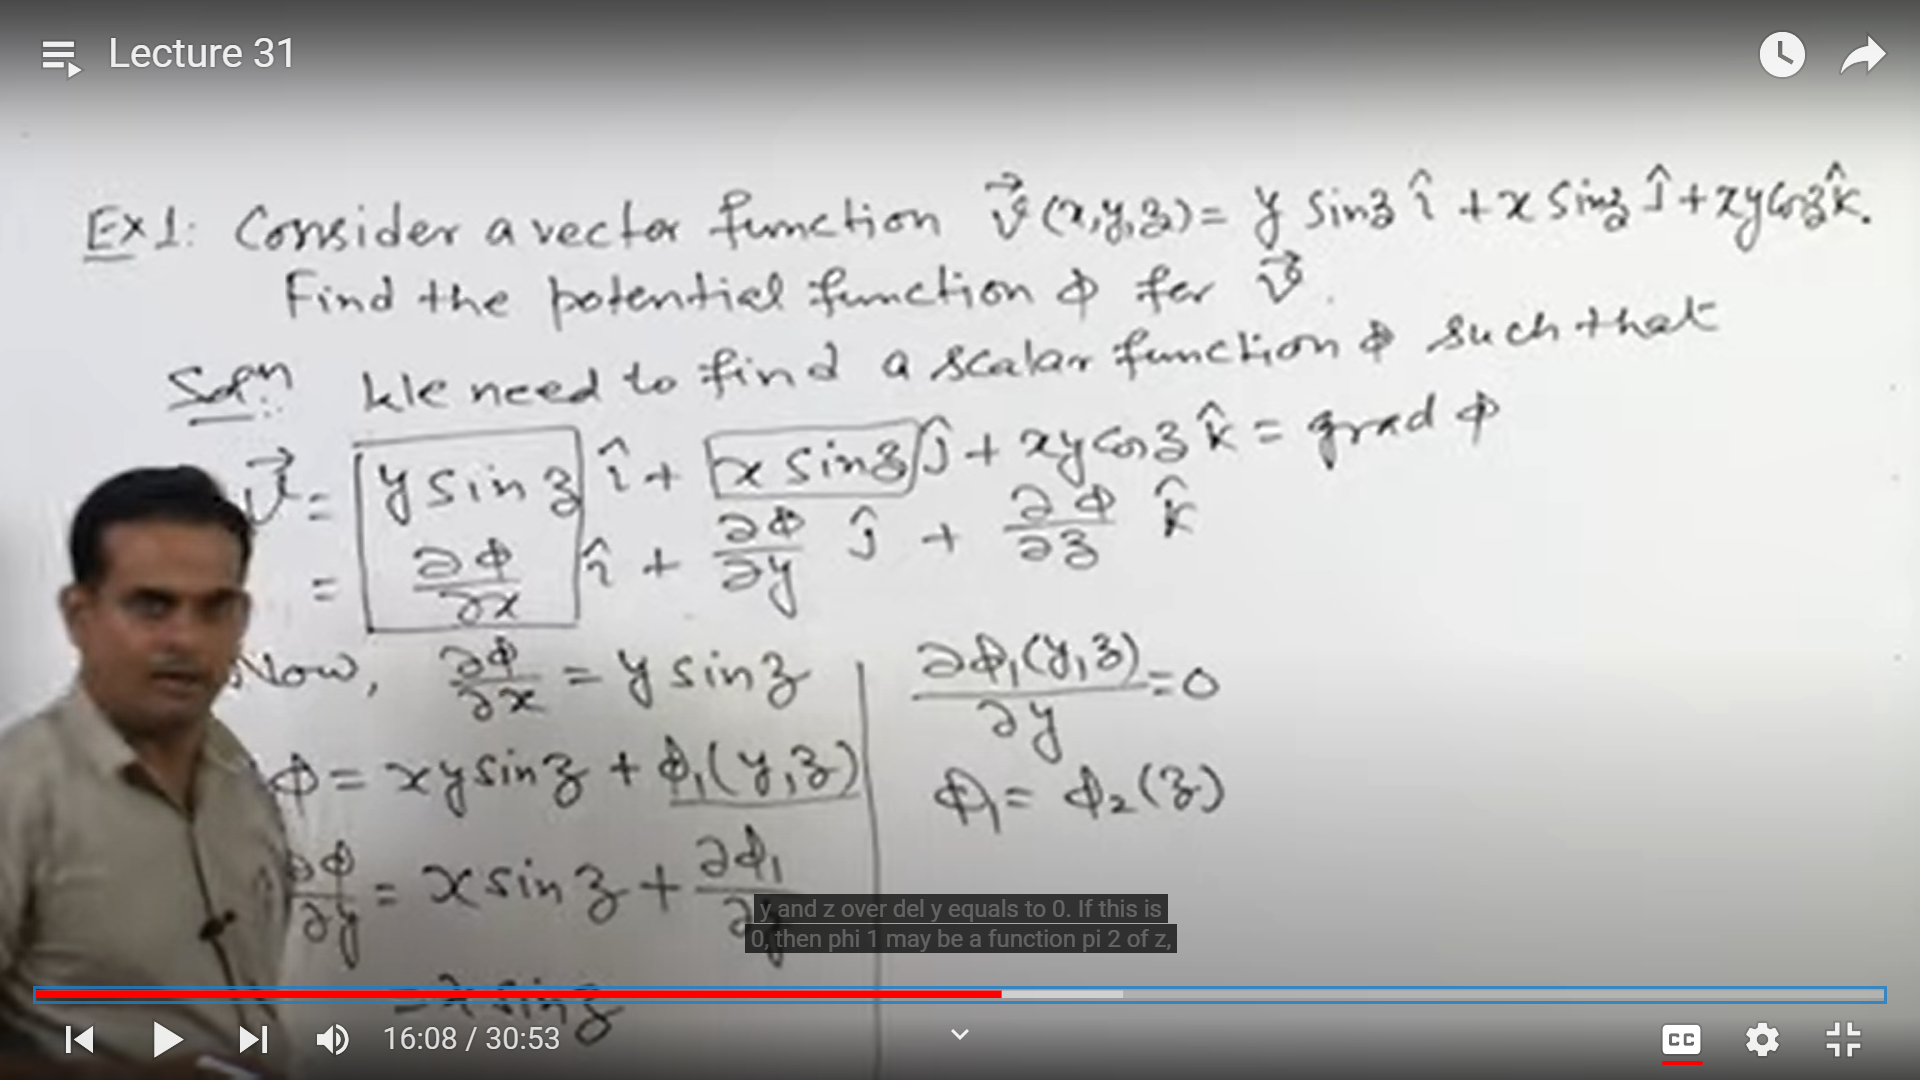 Lecture 31
Ex1: Consider a vector function v⃗(x,y,z) = y sinz î + x sinz ĵ + xycosz k̂.
Find the potential function ϕ for v⃗.
Solⁿ: We need to find a scalar function ϕ such that
v⃗ = y sinz î + x sinz ĵ + xycosz k̂ = grad ϕ
= ∂ϕ/∂x î + ∂ϕ/∂y ĵ + ∂ϕ/∂z k̂
Now, ∂ϕ/∂x = y sinz
ϕ = xysinz + ϕ₁(y,z)
∂ϕ/∂y = x sinz + ∂ϕ₁/∂y
= x sinz
∂ϕ₁(y,z)/∂y = 0
ϕ₁ = ϕ₂(z)
y and z over del y equals to 0. If this is
0, then phi 1 may be a function pi 2 of z,
16:08 / 30:53
CC